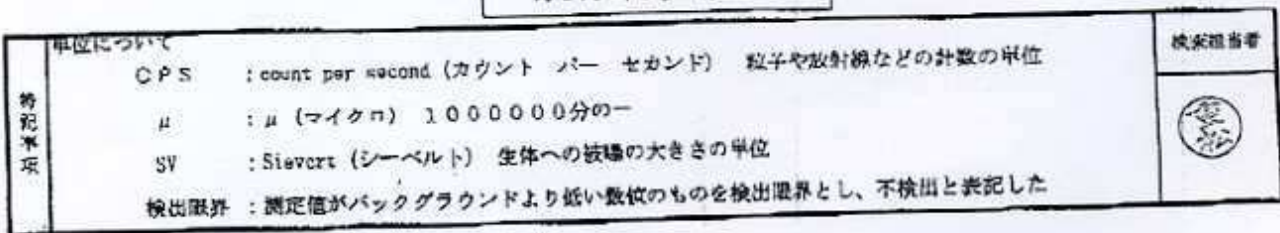 単位について
検査担当者
CPS :count per second (カウント パー セカンド) 粒子や放射線などの計数の単位
特記事項
μ :μ (マイクロ) 1000000分の一
SV :Sievert (シーベルト) 生体への被曝の大きさの単位
検出限界 :測定値がバックグラウンドより低い数値のものを検出限界とし、不検出と表記した